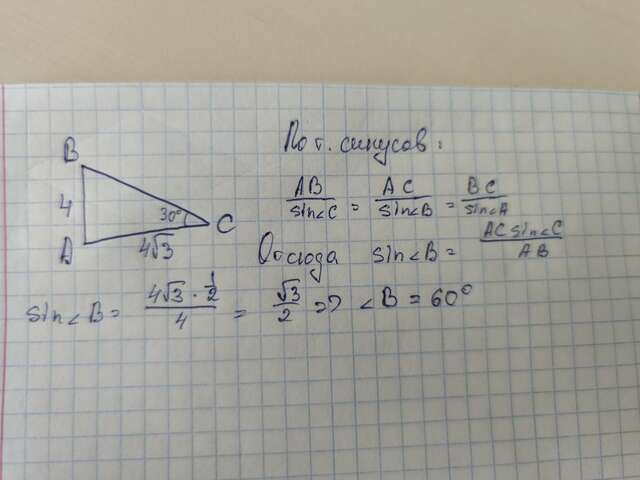 По т. синусов:
B
4
A
30°
C
4√3
AB/sin∠C = AC/sin∠B = BC/sin∠A
Отсюда sin∠B = AC sin∠C/AB
sin∠B = 4√3 · 1/2 / 4 = √3/2 => ∠B = 60°